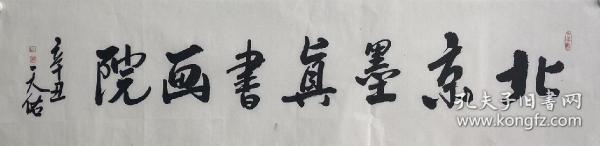 北京墨真書画院
辛丑
天佑
孔夫子旧书网
www.kongfz.com